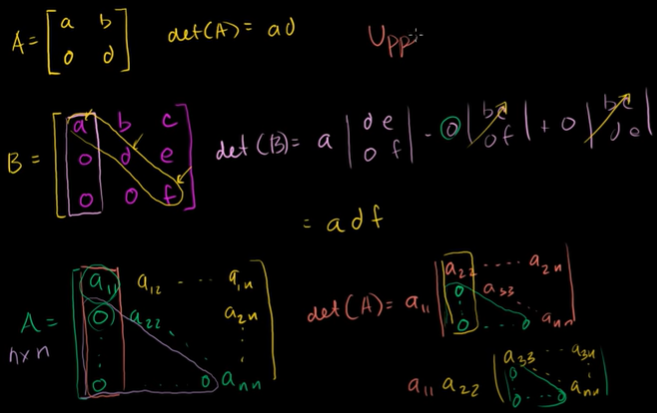 A = [ a b
0 d ]
det(A) = ad
Upp
B = [ a b c
0 d e
0 0 f ]
det(B) = a | d e
0 f | - 0 | b c
0 f | + 0 | b c
d e |
= adf
A = [ a₁₁ a₁₂ ... a₁ₙ
0 a₂₂ ... a₂ₙ
⋮ ⋮
0 ... 0 aₙₙ ]
n×n
det(A) = a₁₁ | a₂₂ .... a₂ₙ
0 a₃₃ ⋮
0 .... 0 aₙₙ |
a₁₁ a₂₂ | a₃₃ ... a₃ₙ
0 ⋮
0 ... 0 aₙₙ |